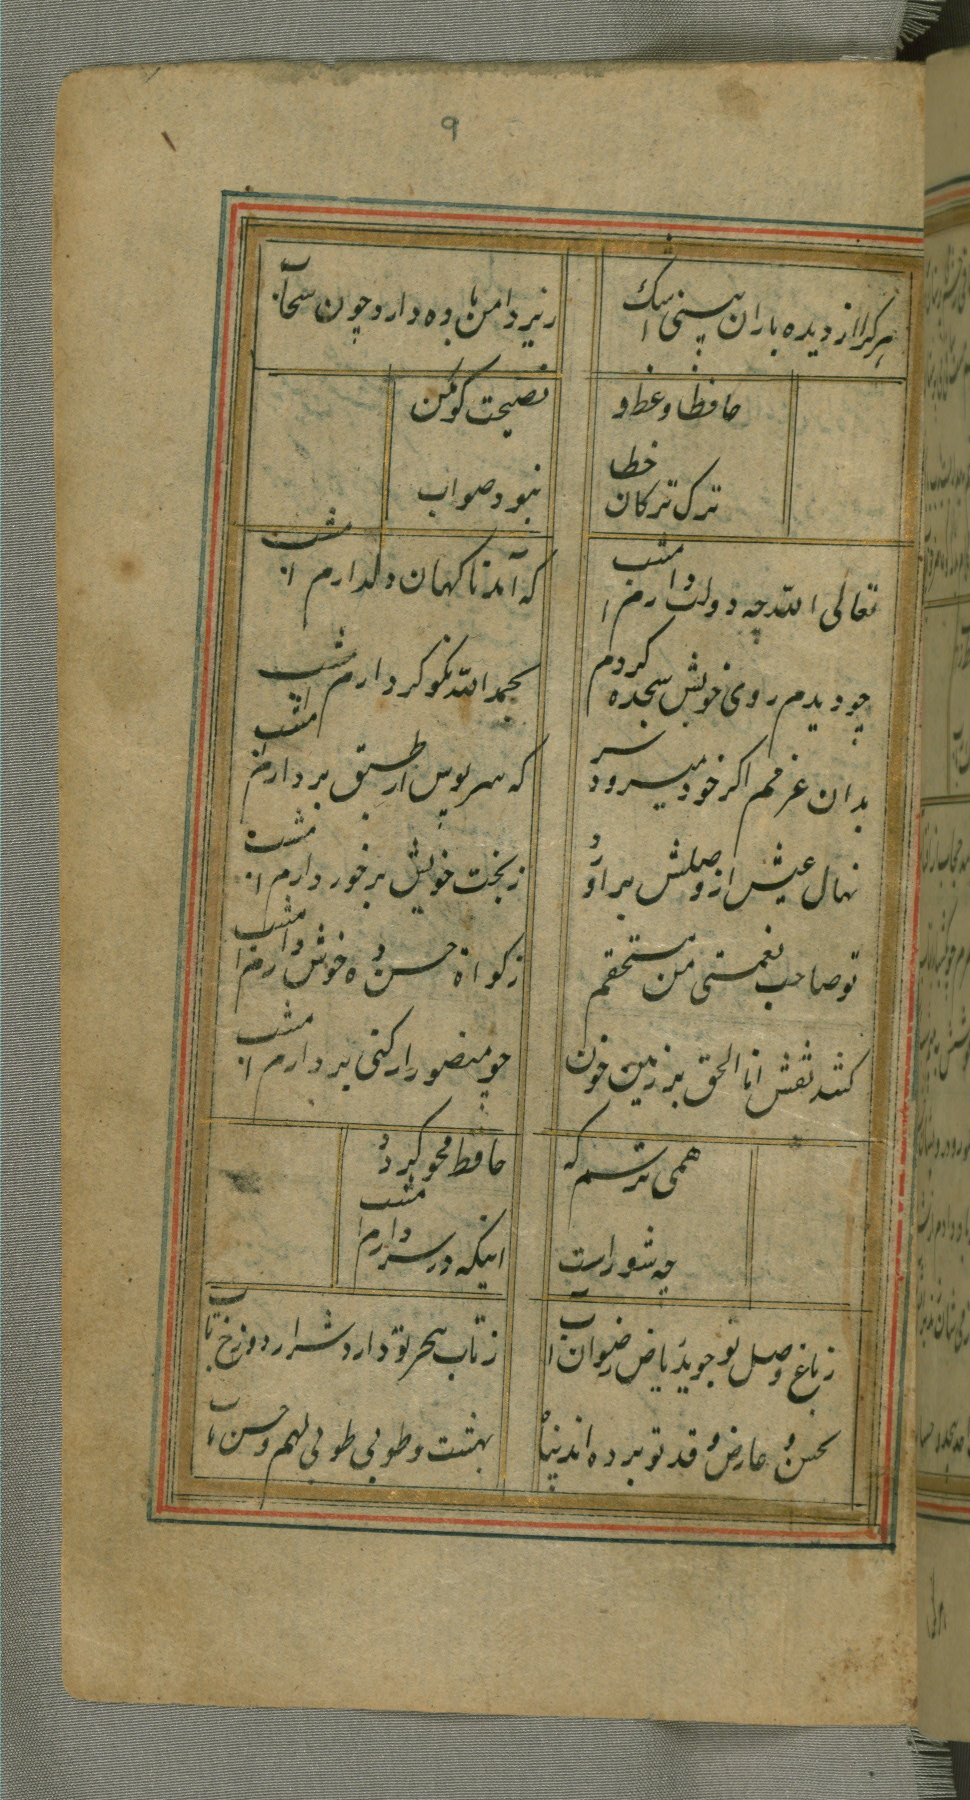 ۹
هرکرا از دیده باران بینی اشک
زیر دامن باده دارد چون سحاب
حافظا وعظ و
نصیحت کو مکن
ترک ترکان خطا
نبود صواب
تعالی الله چه دولت دارم امشب
که آمد ناکهان دلدارم امشب
چو دیدم روی خوبش سجده کردم
بحمد الله نکو کردارم امشب
بدان عزمم اکر خود میرود سر
که سرپوش از طبق بردارم امشب
نهال عیش از وصلش بر آورد
ز بخت خویش برخوردارم امشب
تو صاحب نعمتی من مستحقم
زکواة حسن ده خوش دارم امشب
کشد نقش انا الحق بر زمین خون
چو منصور ار کنی بر دارم امشب
همی ترسم که
حافظ محو کردد
چه شوراست
اینکه در سر دارم امشب
ز باغ وصل تو جوید ریاض رضوان آب
ز تاب هجر تو دارد شرار دوزخ تاب
بحسن و عارض و قد تو برده اند پناه
بهشت و طوبی طوبی لهم و حسن مآب